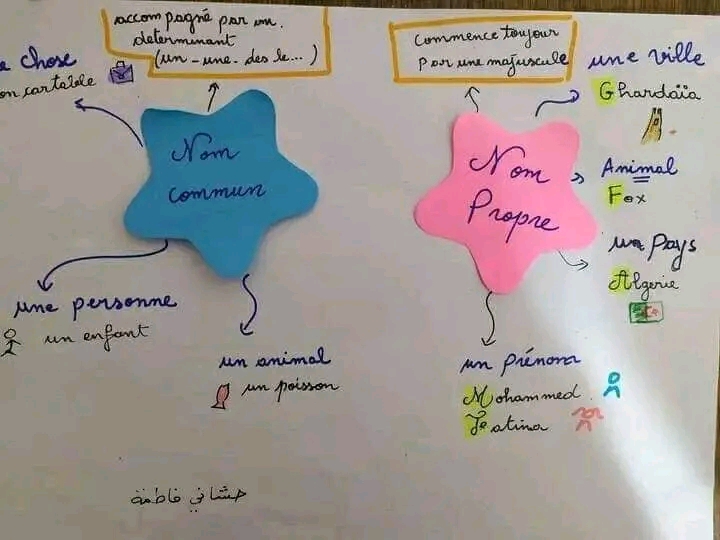 accompagné par un
determinant
(un - une - des le...)
chose
cartable
Nom
commun
une personne
un enfant
un animal
un poisson
Commence toujour
par une majuscule
Nom
Propre
une ville
Ghardaïa
Animal
Fox
un Pays
Algerie
un prénom
Mohammed
Fatina
حشاني فاطمة